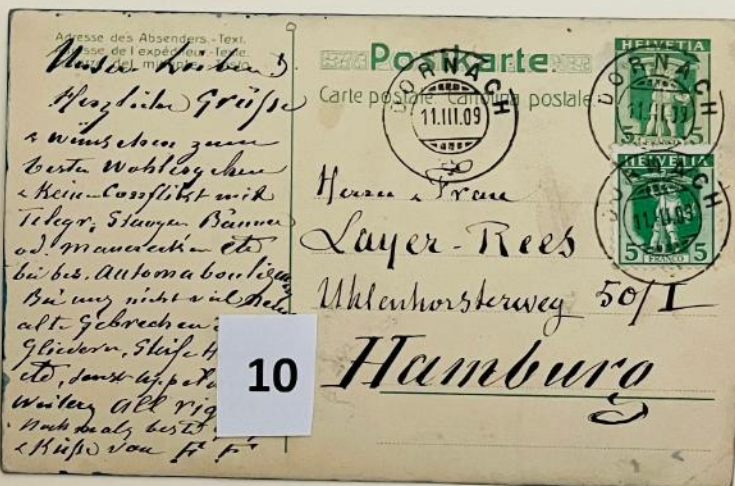 Adresse des Absenders.-Text.
Adresse de l'expéditeur.-Texte.
del mittente.-Testo.
Unsre Lieben!
Herzliche Grüsse
& wünschen zum
besten Wohlergehen
& Kein Conflikt mit
Telegr. Stangen Bäumen
od. Mauerecken etc
bei
Bei uns nicht viel
alte Gebrechen
Gliedern, Steife
etc, sonst
Weitern All rig
Nochmals beste
& Küsse von F F
10
Postkarte.
Carte postale. Cartolina postale.
DORNACH
11.III.09
HELVETIA
5 FRANCO 5
DORNACH
11.III.09
HELVETIA
5 FRANCO 5
DORNACH
11.III.09
Herrn & Frau
Layer-Rees
Uhlenhorsterweg 50/I
Hamburg